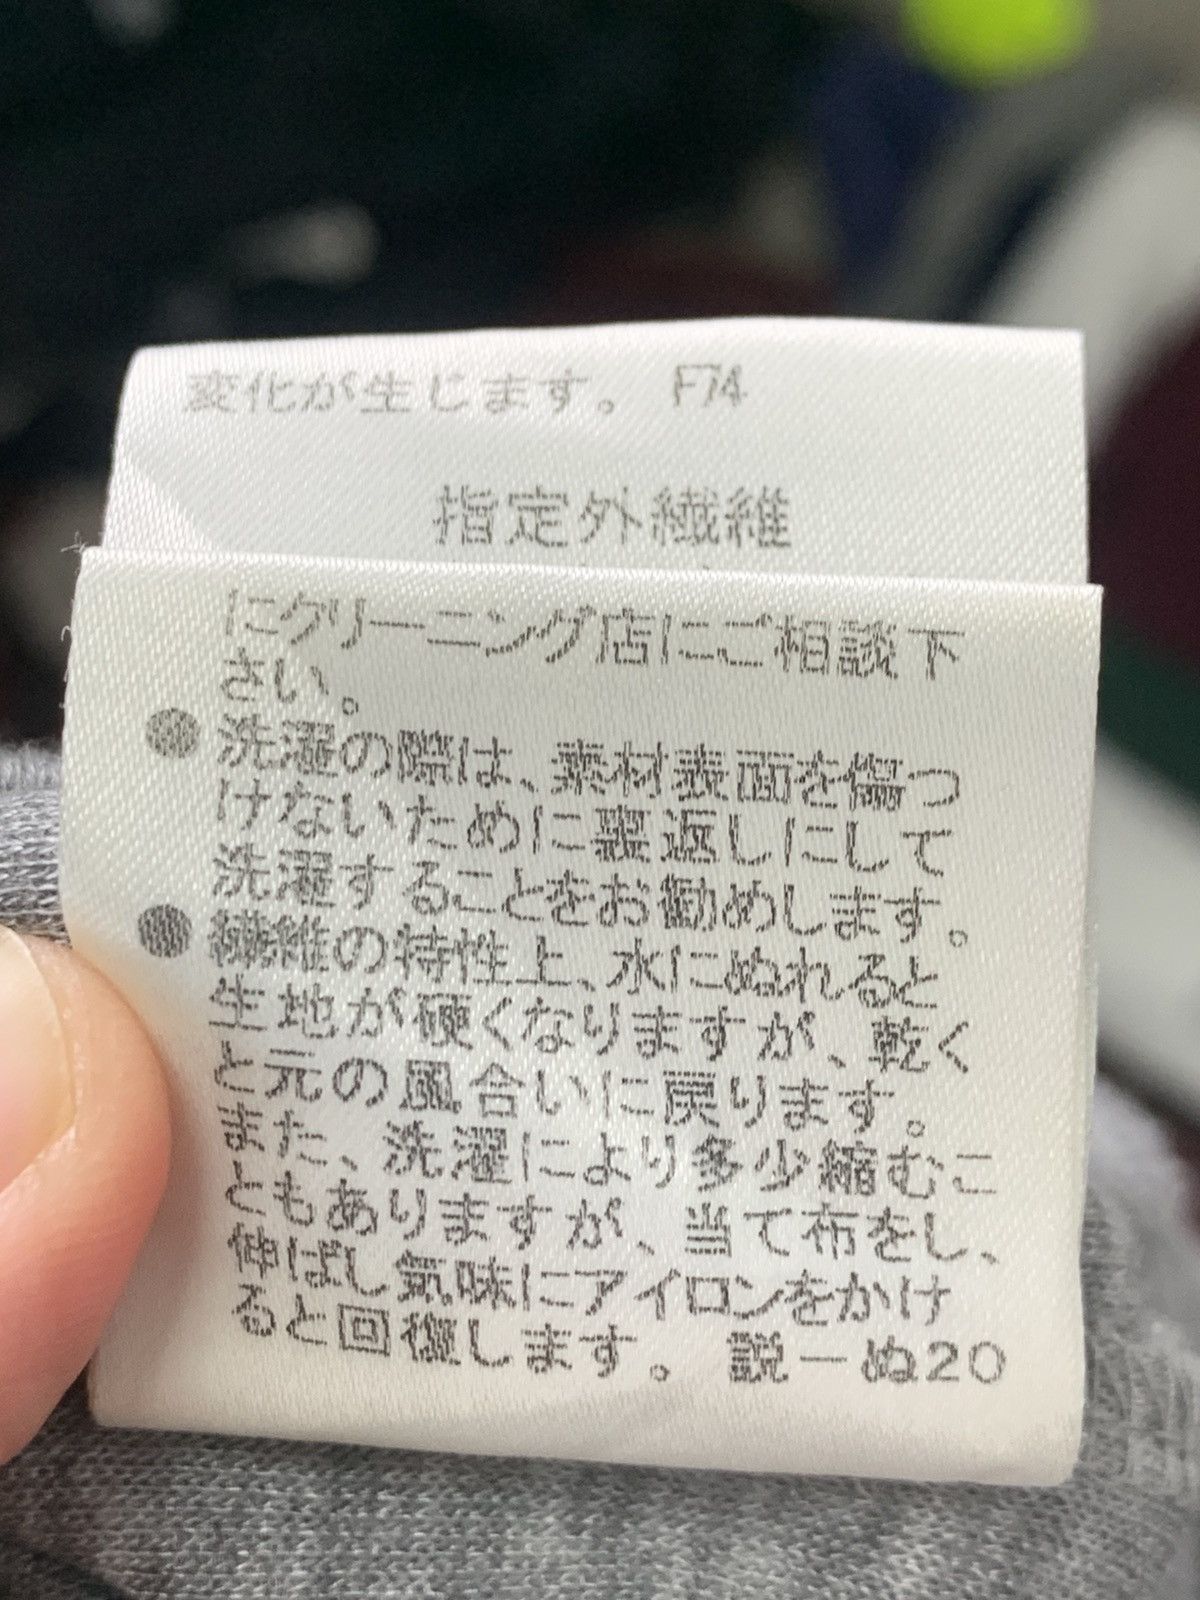 変化が生じます。 F74
指定外繊維
にクリーニング店にご相談下
さい。
●洗濯の際は、素材表面を傷つ
けないために裏返しにして
洗濯することをお勧めします。
●繊維の特性上、水にぬれると
生地が硬くなりますが、乾く
と元の風合いに戻ります。
また、洗濯により多少縮むこ
ともありますが、当て布をし、
伸ばし気味にアイロンをかけ
ると回復します。 説－ぬ20